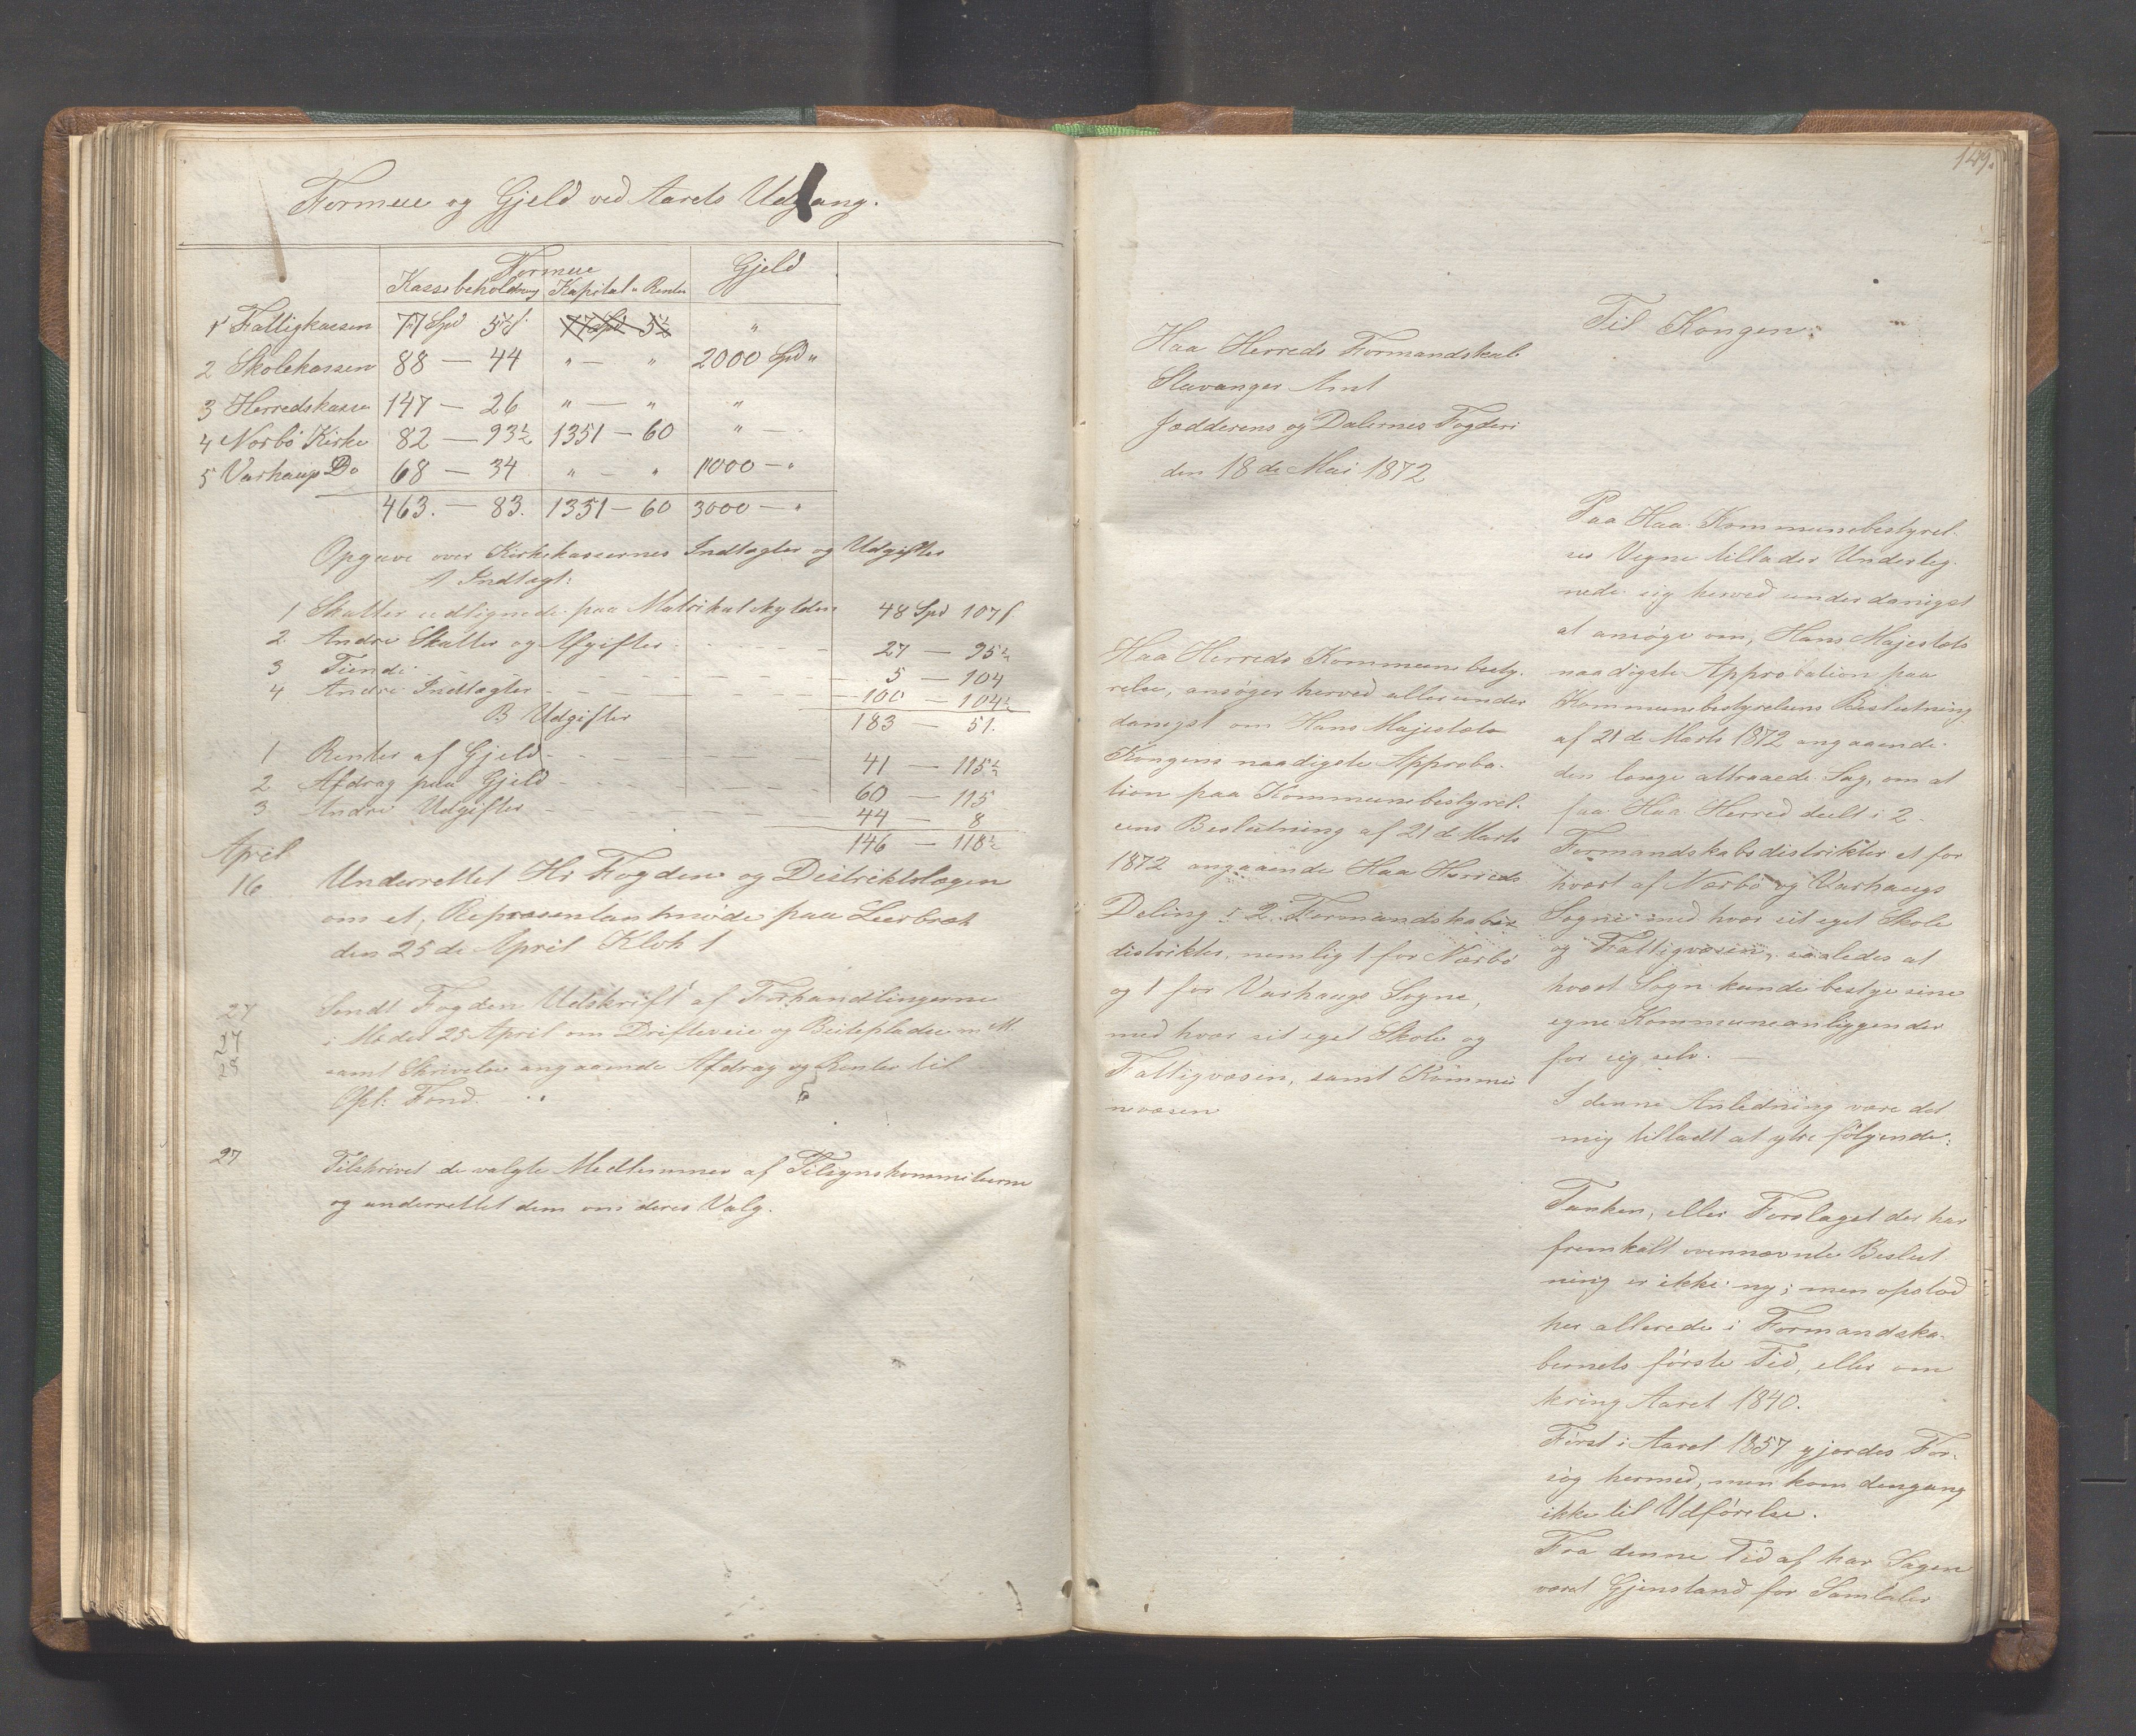 Formue og Gjeld ved Aarets Udgang.
Formue Gjeld
Kassebeholdning Kapital & Renter
1 Fattigkassen 77 Spd 5½ s. 77 Spd 5½ "
2 Skolekassen 88 — 44 " — " 2000 Spd "
3 Herredskasse 147 — 26 " — " "
4 Nærbö Kirke 82 — 93½ 1351 — 60 " —
5 Varhaug Do 68 — 34 " — " 1000 — "
463. — 83. 1351 — 60 3000 — "
Opgave over Kirkekassernes Indtægter og Udgifter
A Indtægt:
1 Skatter udlignede paa Matrikulskylden 48 Spd 107 s.
2 Andre Skatter og Afgifter 27 — 95½
3 Tiende 5 — 104
4 Andre Indtægter 100 — 104½
B Udgifter 183 — 51.
1 Renter af Gjeld 41 — 115½
2 Afdrag paa Gjeld 60 — 115
3 Andre Udgifter 44 — 8
146 — 118½
April
16 Underrettet Hr Fogden og Distriktslægen
om et Repræsentantmöde paa Leerbræk
den 25de April Klok 1
27 Sendt Fogden Udskrift af Forhandlingerne
27 i Mödet 25 April om Drifteveie og Beitepladse m M.
samt Skrivelse angaaende Afdrag og Renter til
Opl: Fond.
27 Tilskrivet de valgte Medlemmer af Tilsynskommiteerne
og underrettet dem om deres Valg.
149.
Til Kongen.
Haa Herreds Formandskab
Stavanger Amt
Jædderens og Dalernes Fogderi
den 18de Mai 1872
Haa Herreds Kommunebesty-
relse, ansøger herved allerunder
danigst om Hans Majestæts
Kongens naadigste Approba-
tion paa Kommunebestyrel-
sens Beslutning af 21de Marts
1872 angaaende Haa Herreds
Deling i 2 Formandskabs
distrikter, nemlig 1 for Nærbö
og 1 for Varhaugs Sogne,
med hver sit eget Skole og
Fattigvæsen, samt Kommu
nevæsen
Paa Haa Kommunebestyrel-
ses Vegne tillader Underteg-
nede sig herved underdanigst
at ansöge om, Hans Majestæts
naadigste Approbation paa
Kommunebestyrelsens Beslutning
af 21de Marts 1872 angaaende
den længe attraaede Sag, om at
faa Haa Herred deelt i 2
Formandskabsdistrikter et for
hvert af Nærbö og Varhaugs
Sogne med hver sit eget Skole
og Fattigvæsen, saaledes at
hvert Sogn kunde bestye sine
egne Kommuneanliggender
for sig selv. —
I denne Anledning være det
mig tilladt at ytre fölgende:
Tanken, eller Forslaget der har
fremkalt ovennævnte Beslut
ning er ikke ny; men opstod
her allerede i Formandska-
bernets förste Tid, eller om
kring Aaret 1840.
Först i Aaret 1857 gjordes For-
sög hermed, men kom dengang
ikke til Udförelse.
Fra denne Tid af har Sagen
været Gjenstand for Samtaler